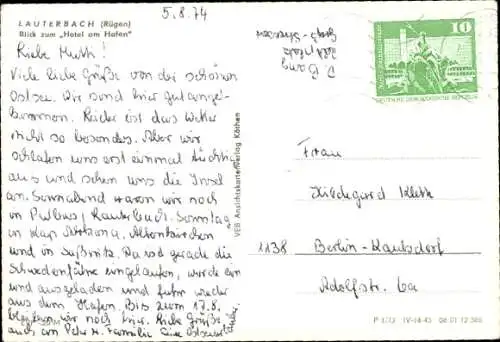 5.8.74
LAUTERBACH (Rügen)
Blick zum „Hotel am Hafen"
Liebe Mutti!
Viele liebe Grüße von der schönen
Ostsee. Wir sind hier gut ange-
kommen. Leider ist das Wetter
nicht so besonders. Aber wir
schlafen uns erst einmal tüchtig
aus und sehen uns die Insel
an. Sonnabend waren wir noch
in Putbus, Lauterbach. Sonntag
in Kap Arkona, Altenkirchen
und in Saßnitz. Da ist gerade die
Schwedenfähre eingelaufen, wurde ein
und ausgeladen und fuhr wieder
aus dem Hafen. Bis zum 17.8.
bleiben wir noch hier. Liebe Grüße
auch an Familie
VEB Ansichtskartenverlag Köthen
10
DEUTSCHE DEMOKRATISCHE REPUBLIK
Frau
Hildegard Kleth
1138 Berlin-Kaulsdorf
Adolfstr. 6a
IV-14-45 06 01 12 386